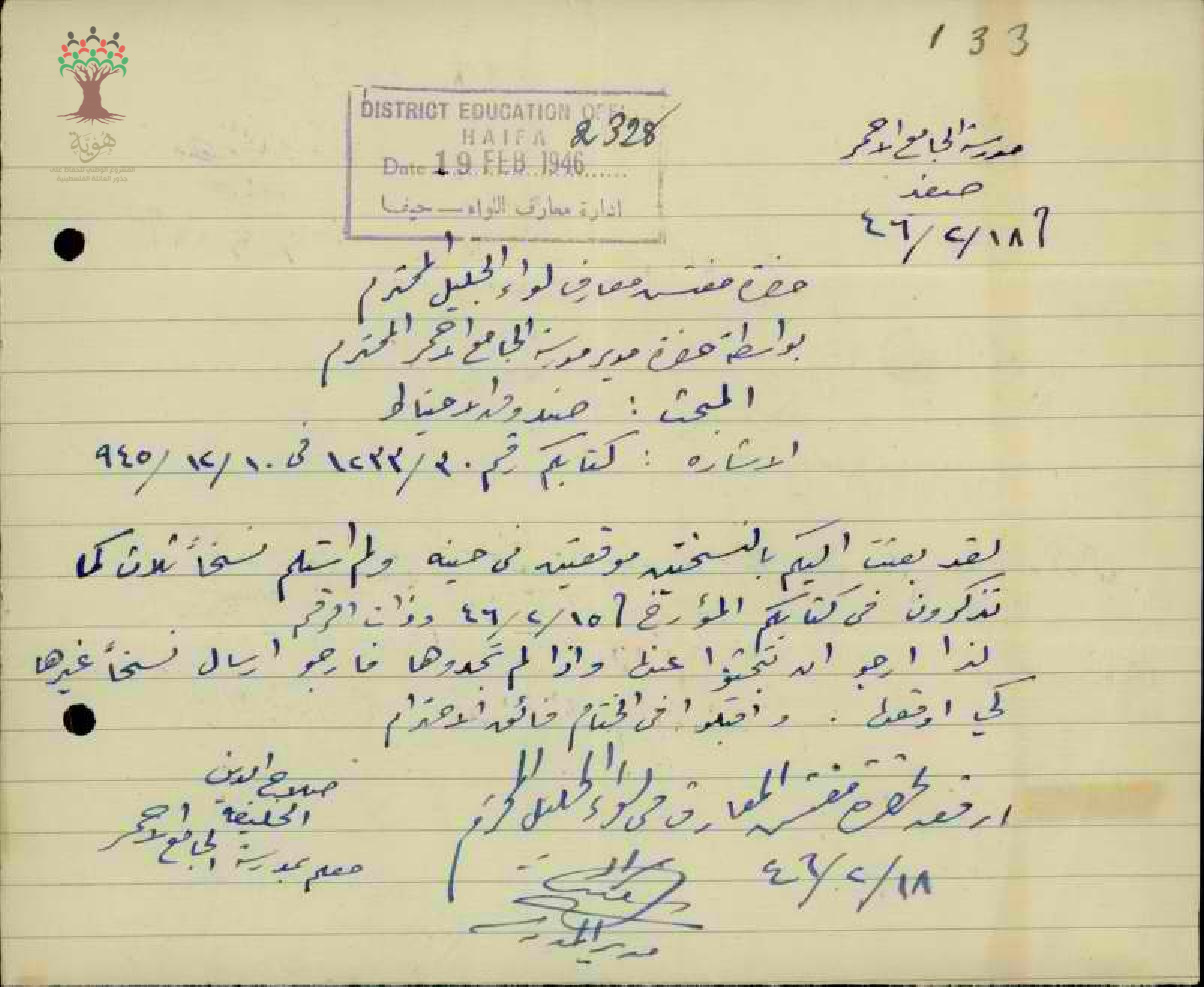 133
هوية
المشروع الوطني للحفاظ على
جذور العائلة الفلسطينية
DISTRICT EDUCATION OFFI
HAIFA
2328
Date 19 FEB 1946
ادارة معارف اللواء — حيفا
مدرسة الجامع الاحمر
صفد
٤٦/٢/١٨
حضرة مفتش معارف لواء الجليل المحترم
بواسطة حضرة مدير مدرسة الجامع الاحمر المحترم
المبحث : صندوق الاحتياط
الاشاره : كتابكم رقم ١٢٣٣/٣٠ في ٩٤٥/١٢/١٠
لقد بعثت اليكم بالنسختين موقعتين في حينه ولم استلم نسخاً ثلاث كما
تذكرون في كتابكم المؤرخ ٤٦/٢/١٥ وذات الرقم
لذا ارجو ان تبحثوا عنها واذا لم تجدوها فارجو ارسال نسخاً غيرها
كي اوقعها . واقبلوا في الختام فائق الاحترام
صلاح الدين
الخليفة
معلم بمدرسة الجامع الاحمر
ارفعه لحضرة مفتش المعارف في لواء الجليل المحترم
٤٦/٢/١٨
مدير المدرسة